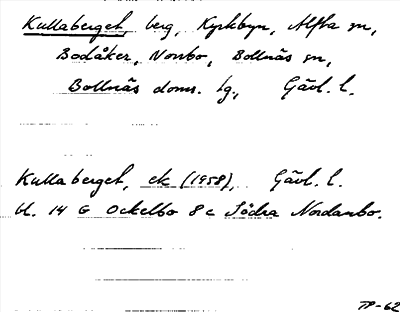 Kullaberget, berg, Kyrkbyn, Alfta sn,
Bodåker, Norrbo, Bollnäs sn,
Bollnäs doms. tg, Gävl. l.
Kullaberget, ek (1958), Gävl. l.
bl. 14 G Ockelbo 8 c Södra Nordanbo.
TP-62